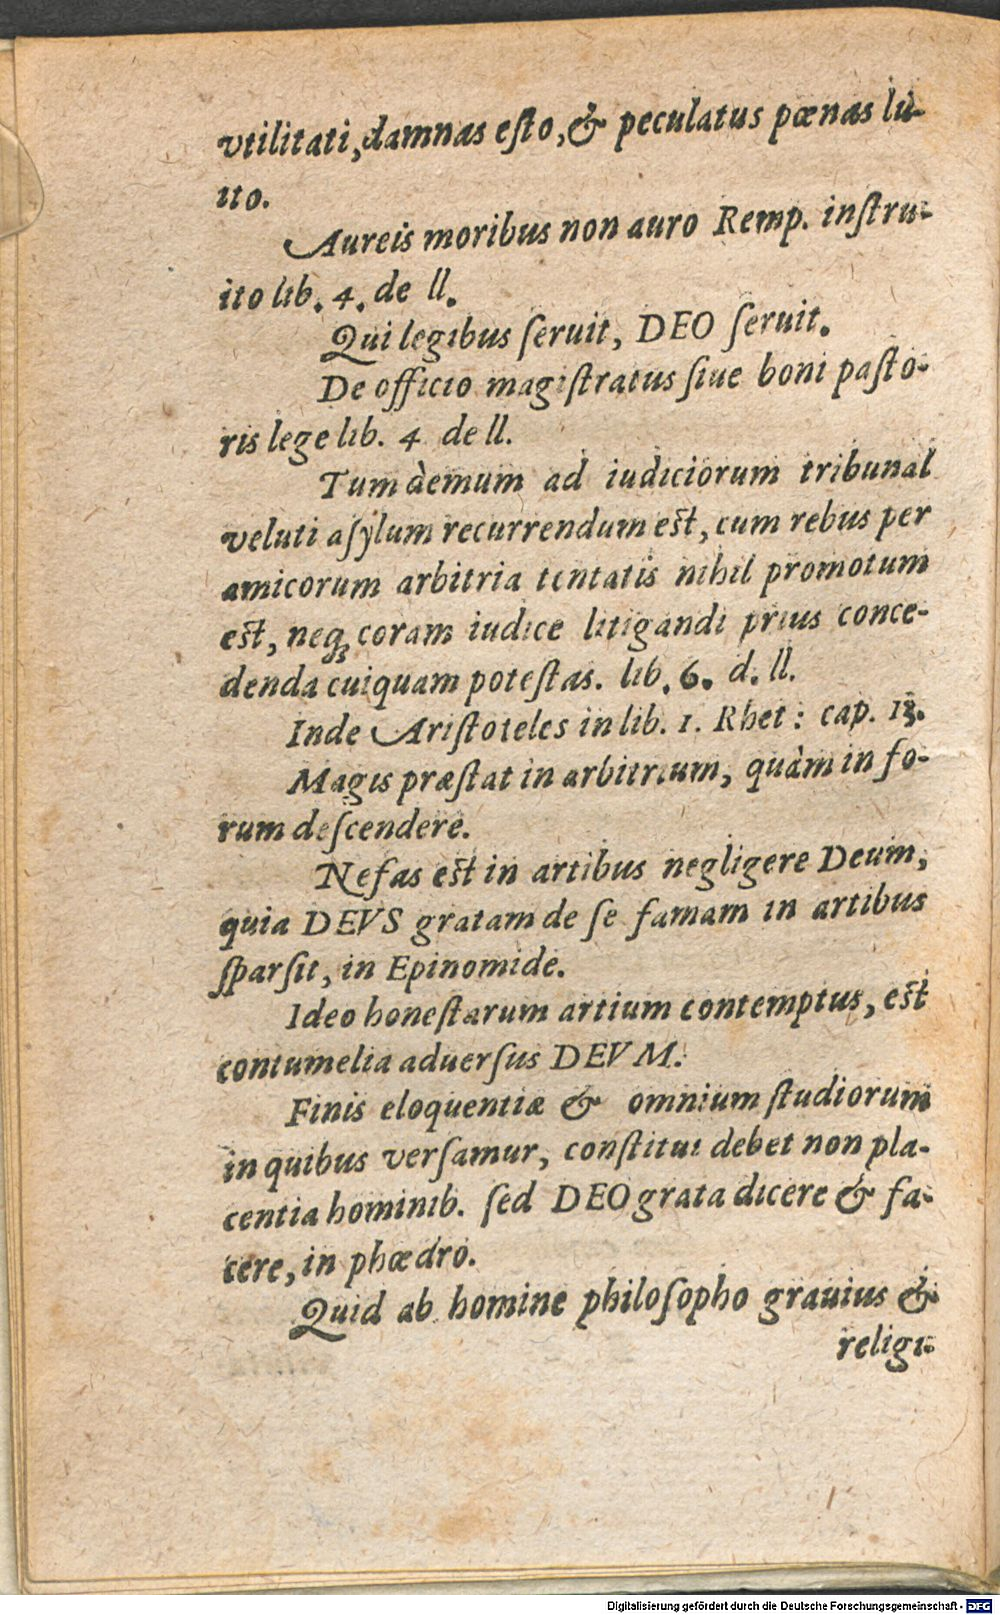 vtilitati, damnas eſto, & peculatus pœnas lu-
ito.
Aureis moribus non auro Remp. inſtru-
ito lib. 4. de ll.
Qui legibus ſeruit, DEO ſeruit.
De officio magiſtratus ſiue boni paſto-
ris lege lib. 4 de ll.
Tum demum ad iudiciorum tribunal
veluti aſylum recurrendum eſt, cum rebus per
amicorum arbitria tentatis nihil promotum
eſt, neq; coram iudice litigandi prius conce-
denda cuiquam poteſtas. lib. 6. d. ll.
Inde Ariſtoteles in lib. 1. Rhet: cap. 13.
Magis præſtat in arbitrium, quàm in fo-
rum deſcendere.
Nefas eſt in artibus negligere Deum,
quia DEVS gratam de ſe famam in artibus
ſparſit, in Epinomide.
Ideo honeſtarum artium contemptus, eſt
contumelia aduerſus DEVM.
Finis eloquentiæ & omnium ſtudiorum
in quibus verſamur, conſtitui debet non pla-
centia hominib. ſed DEO grata dicere & fa-
cere, in phœdro.
Quid ab homine philoſopho grauius &
religi-
Digitalisierung gefördert durch die Deutsche Forschungsgemeinschaft - DFG